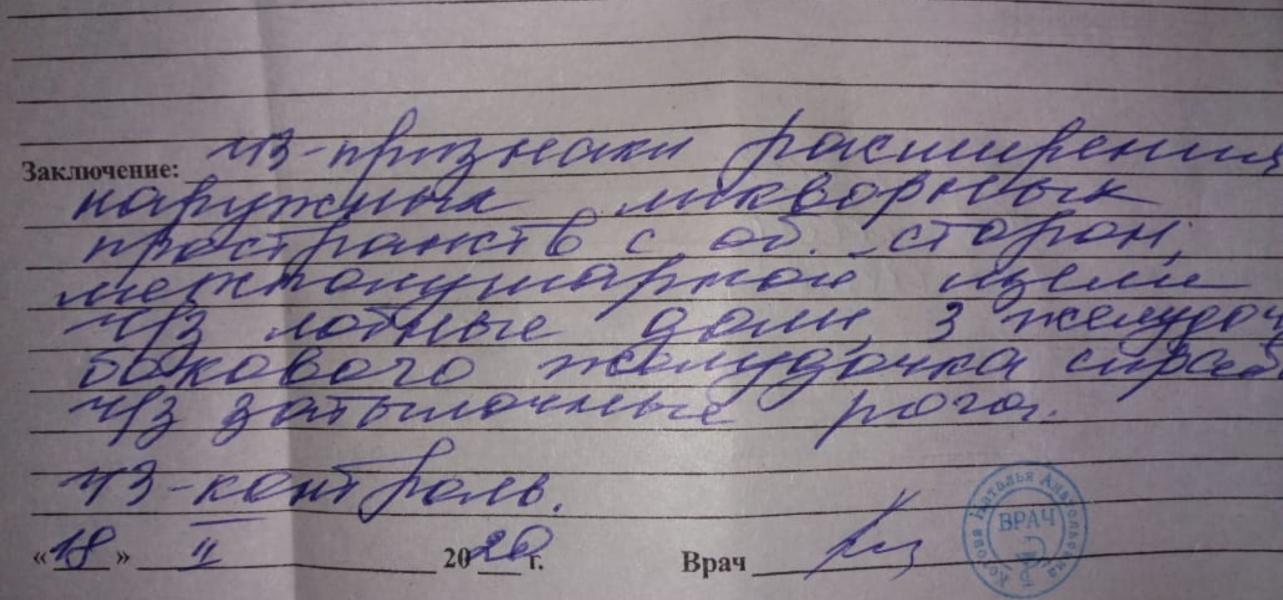 Заключение: УЗ-признаки расширения
наружных ликворных
пространств с об. сторон,
межполушарной щели
ч/з лобные доли, 3 желудоч
бокового желудочка справа
ч/з затылочные рога.
УЗ-контроль.
«18» II 2020 г. Врач
ВРАЧ
Наталья Анатольевна